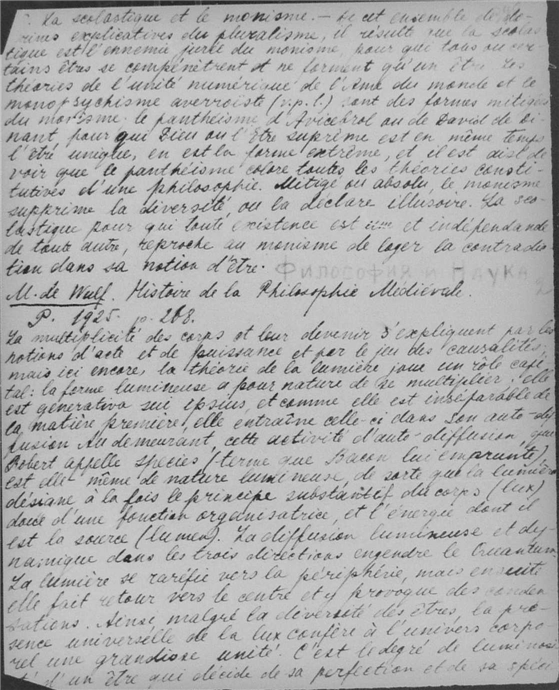 La scolastique et le monisme. — De cet ensemble de do-
trines explicatives du pluralisme, il résulte que la scolas
tique est l'ennemie jurée du monisme, pour qui tous ou cer-
tains êtres se compénètrent et ne forment qu'un être. Les
théories de l'unité numérique de l'Ame du monde et le
monopsychisme averroïste (v.p.l.) sont des formes mitigées
du monisme. le panthéisme d'Avicebrol ou de David de Di-
nant, pour qui Dieu ou l'Être suprême est en même temps
l'être unique, en est la forme extrême, et il est aisé de
voir que le panthéisme colore toutes les théories consti-
tutives d'une philosophie. Mitigé ou absolu, le monisme
supprime la diversité, ou la déclare illusoire. La sco-
lastique pour qui toute existence est et indépendante
de toute autre, reproche au monisme de loger la contradic
tion dans sa notion d'être.
ФИЛОСОФИЯ И НАУКА
M. de Wulf. Histoire de la Philosophie Médiévale.
P. 1925. p. 268.
La multiplicité des corps et leur devenir s'expliquent par les
notions d'acte et de puissance et par le jeu des causalités,
mais ici encore, la théorie de la lumière joue un rôle capi
tal: la forme lumineuse a pour nature de se multiplier: elle
est generativa sui ipsius, et comme elle est inséparable de
la matière première, elle entraîne celle-ci dans son auto-dif
fusion. Au demeurant, cette activité d'auto-diffusion, que
Robert appelle species (terme que Bacon lui emprunte),
est elle-même de nature lumineuse, de sorte que la lumière
désigne à la fois le principe substantiel du corps (lux)
doué d'une fonction organisatrice, et l'énergie dont il
est la source (lumen). La diffusion lumineuse et dy
namique dans les trois directions engendre le Quantum
La lumière se raréfie vers la périphérie, mais ensuite
elle fait retour vers le centre et y provoque des conden
sations. Ainsi, malgré la diversité des êtres, la pré-
sence universelle de la lux confère à l'univers corpo
rel une grandiose unité. C'est le degré de luminosi
té d'un être qui décide de sa perfection et de sa splen